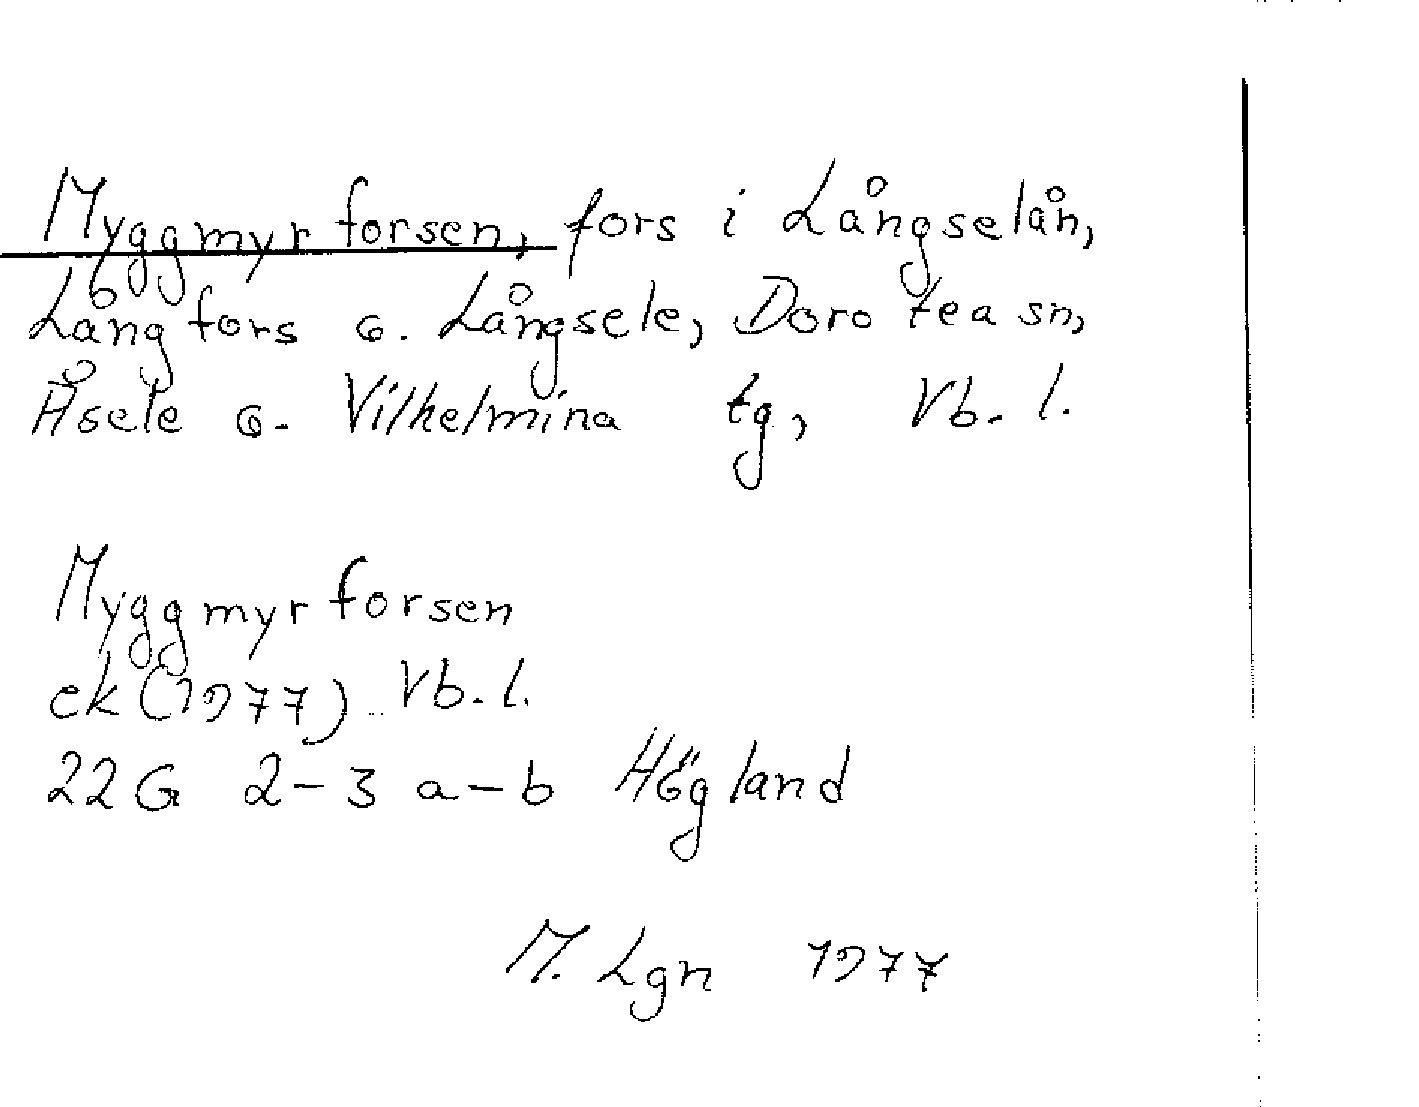 Myggmyrforsen, fors i Långselån,
Långfors o. Långsele, Dorotea sn,
Åsele o. Vilhelmina tg, Vb. l.
Myggmyrforsen
ek (1977) Vb. l.
22G 2-3 a-b Högland
M. Lgn 1977